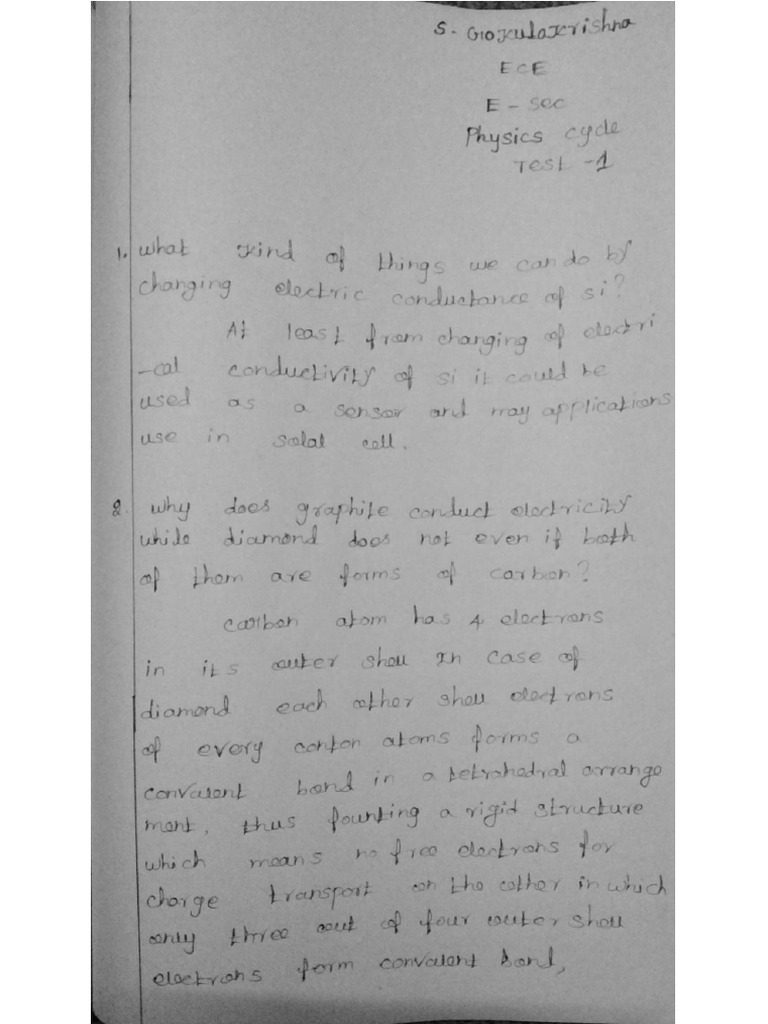 S. Gokulakrishna
ECE
E - sec
Physics cycle
Test - 1
1. What kind of things we can do by
changing electric conductance of si?
At least from changing of electri
-cal conductivity of si it could be
used as a sensor and may applications
use in solal cell.
2. why does graphite conduct electricity
while diamond does not even if both
of them are forms of carbon?
carbon atom has 4 electrons
in its outer shell In case of
diamond each other shell electrons
of every conton atoms forms a
convalent bond in a tetrahedral arrange
ment, thus founting a rigid structure
which means no free electrons for
charge transport on the other in which
only three out of four outer shell
electrons form convalent bond,